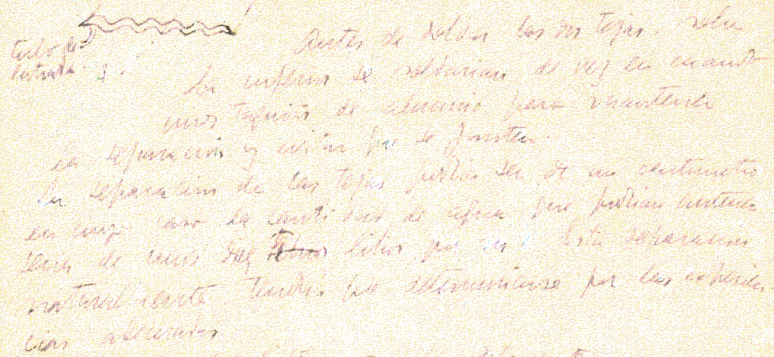 tubo de
entrada
Antes de soldar las dos tejas, sobre
la inferior se soldarian de vez en cuando
unos taquitos de aluminio para mantener
la separación y evitar que se junten.
La separación de las tejas podria ser de un centimetro
en cuyo caso la cantidad de agua que podrian contener
seria de unos diez litros por m². Esta separacion
naturalmente tendria que determinarse por las experien-
cias adecuadas